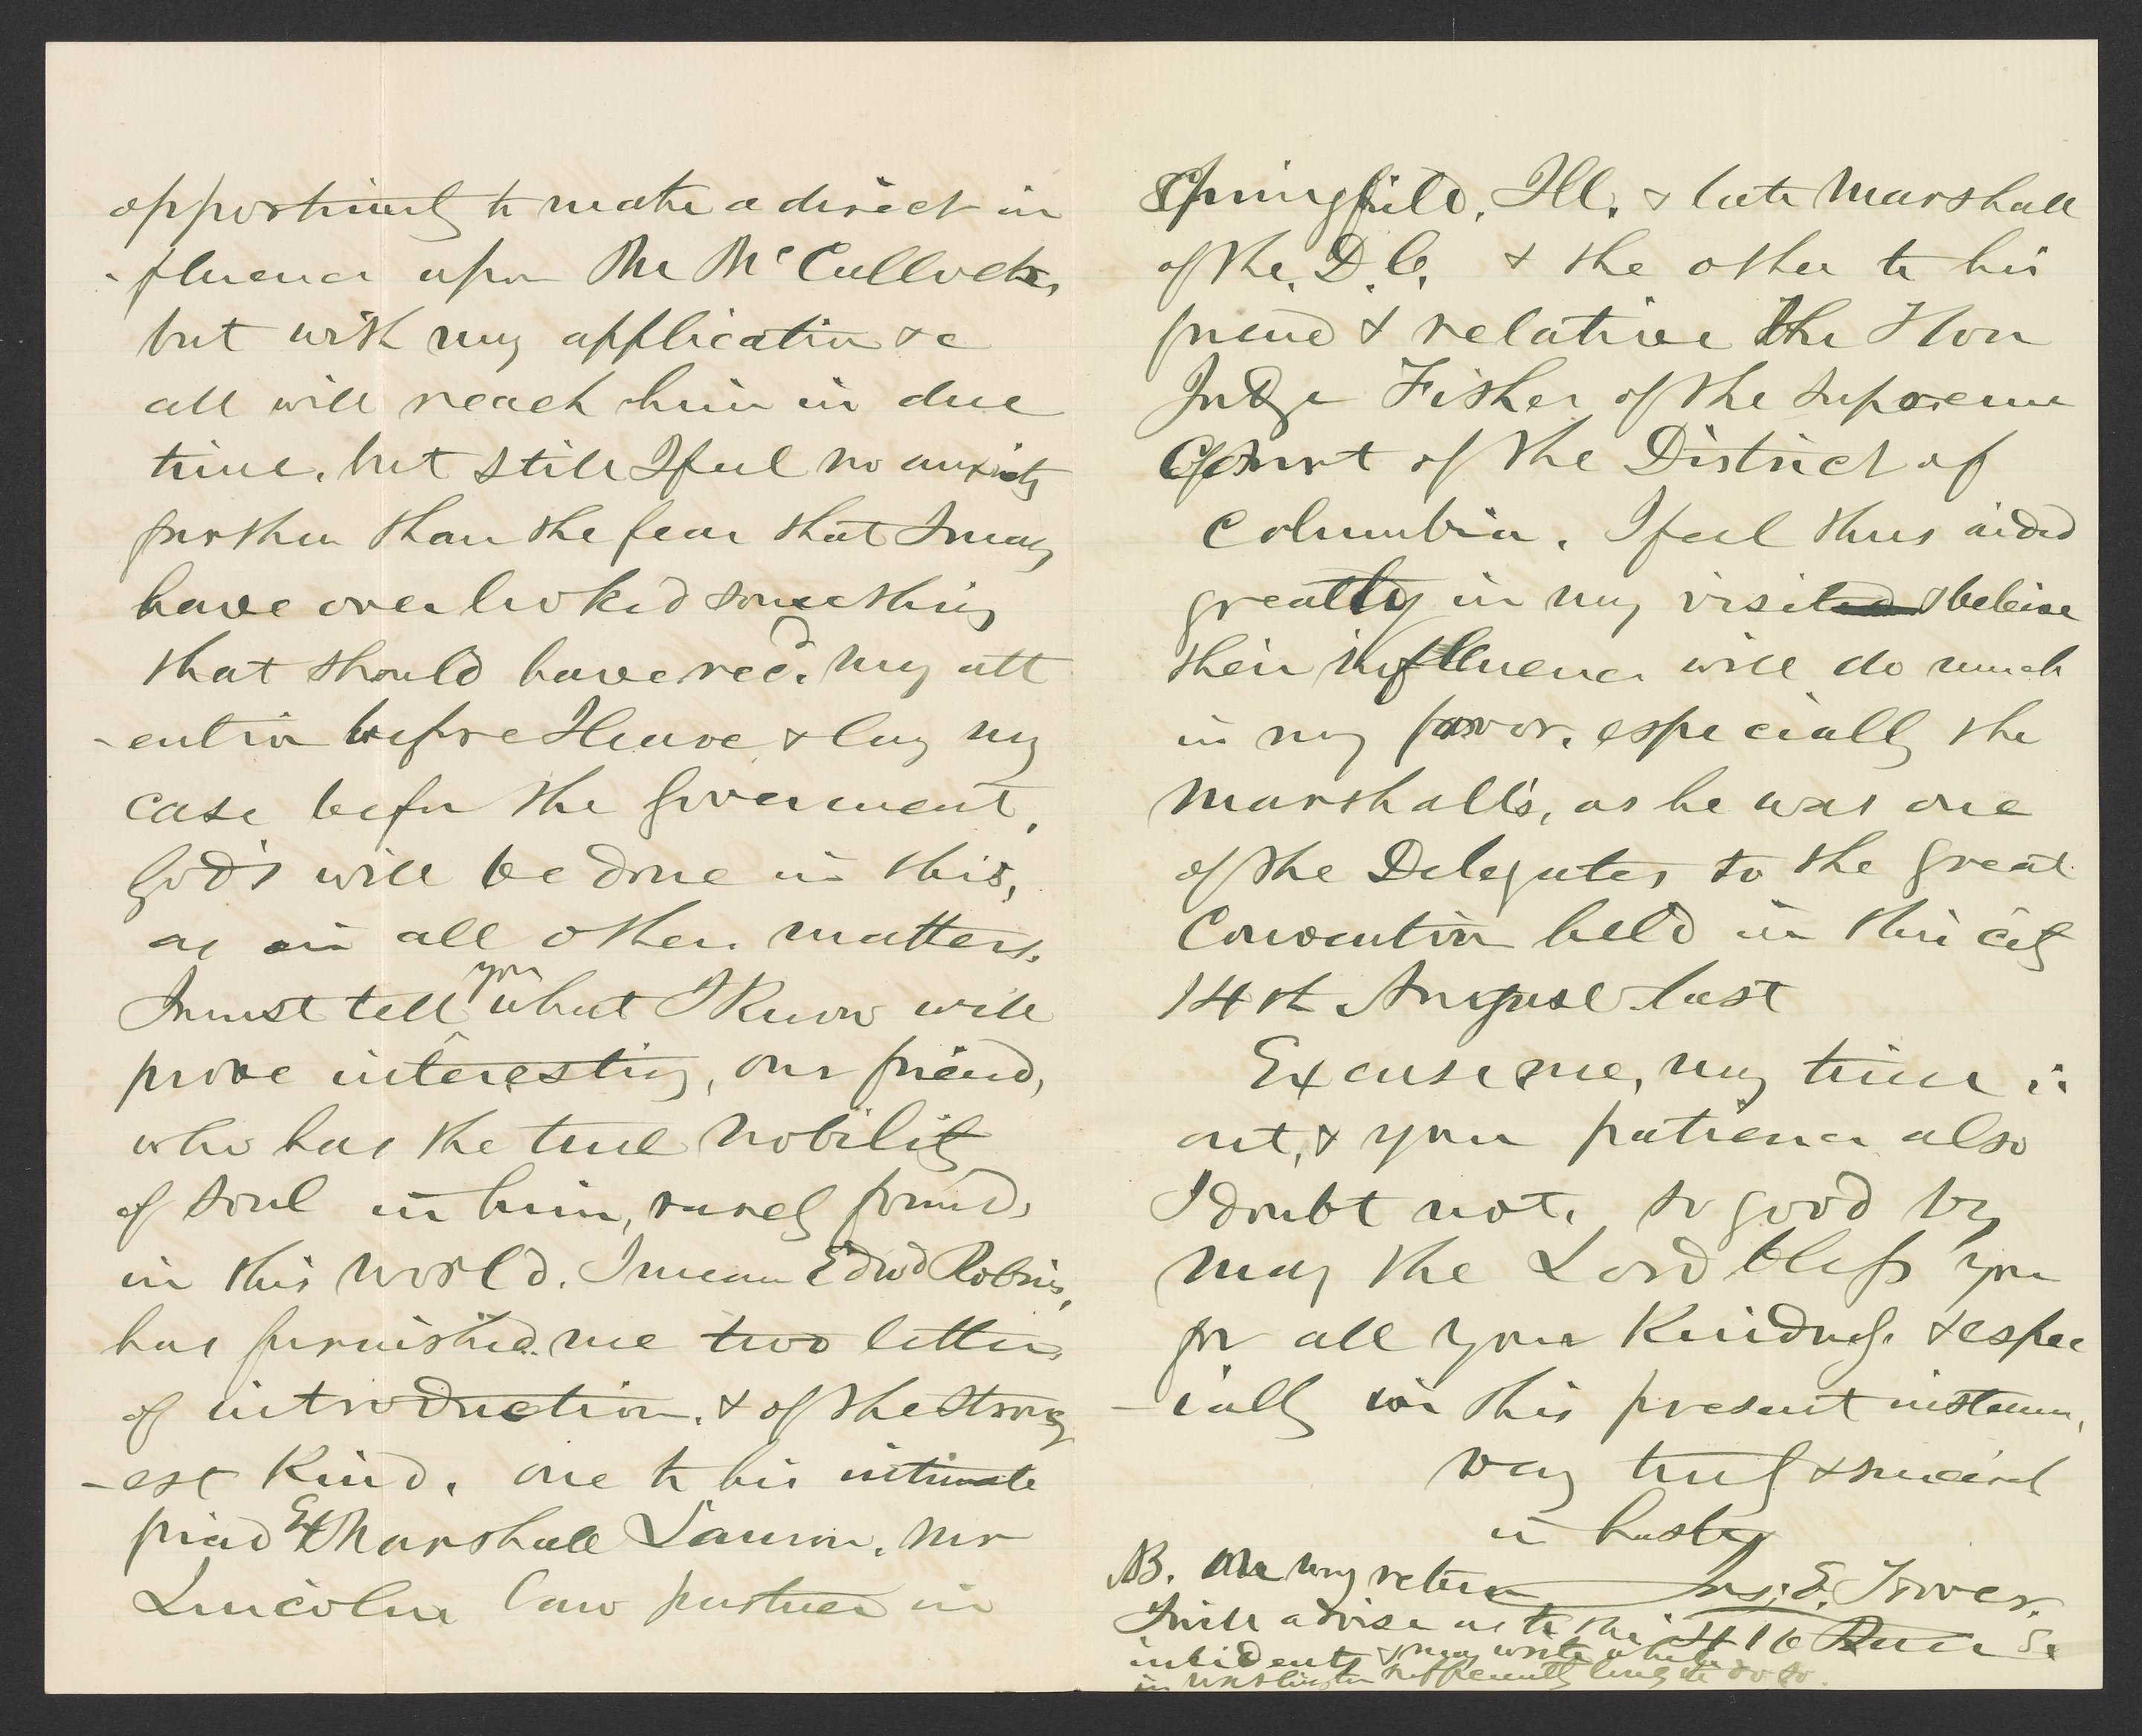 opportunity to make a direct in
-fluence upon Mr McCulloch,
but with my application &c
all will reach him in due
time, but still I feel no anxiety
further than the fear that I may
have over looked something
that should have recd. my att
-ention before I leave & lay my
case before the Goverment,
God's will be done in this,
as in all other matters.
I must tell you what I know will
prove interesting, our friend,
who has the true nobility
of soul in him, rarely found,
in this world. I mean Edwd Robins,
has furnished me two letters
of introduction, & of the strong
-est Kind. one to his intimate
friend Ex Marshall Lamon, Mr
Lincolns law partner in
Springfield, Ill. & late Marshall
of the D.C. & the other to his
friend & relative the Hon
Judge Fisher of the Supreme
Court of the District of
Columbia. I feel thus aided
greatly in my visit & believe
their influence will do much
in my favor, especially the
Marshall's, as he was one
of the Delegates to the great
Convention held in this city
14th August last
Excuse me, my time is
out, & your patience also
I doubt not. so good by
may the Lord bless you
for all your Kindness & espec
-ially in this present instance,
very truly & sincerely
in haste
Jos. E. Tover.
416 Pine St
NB. On my return
I will advise as to the
incidents & may write while
in Washington sufficiently long to do so.